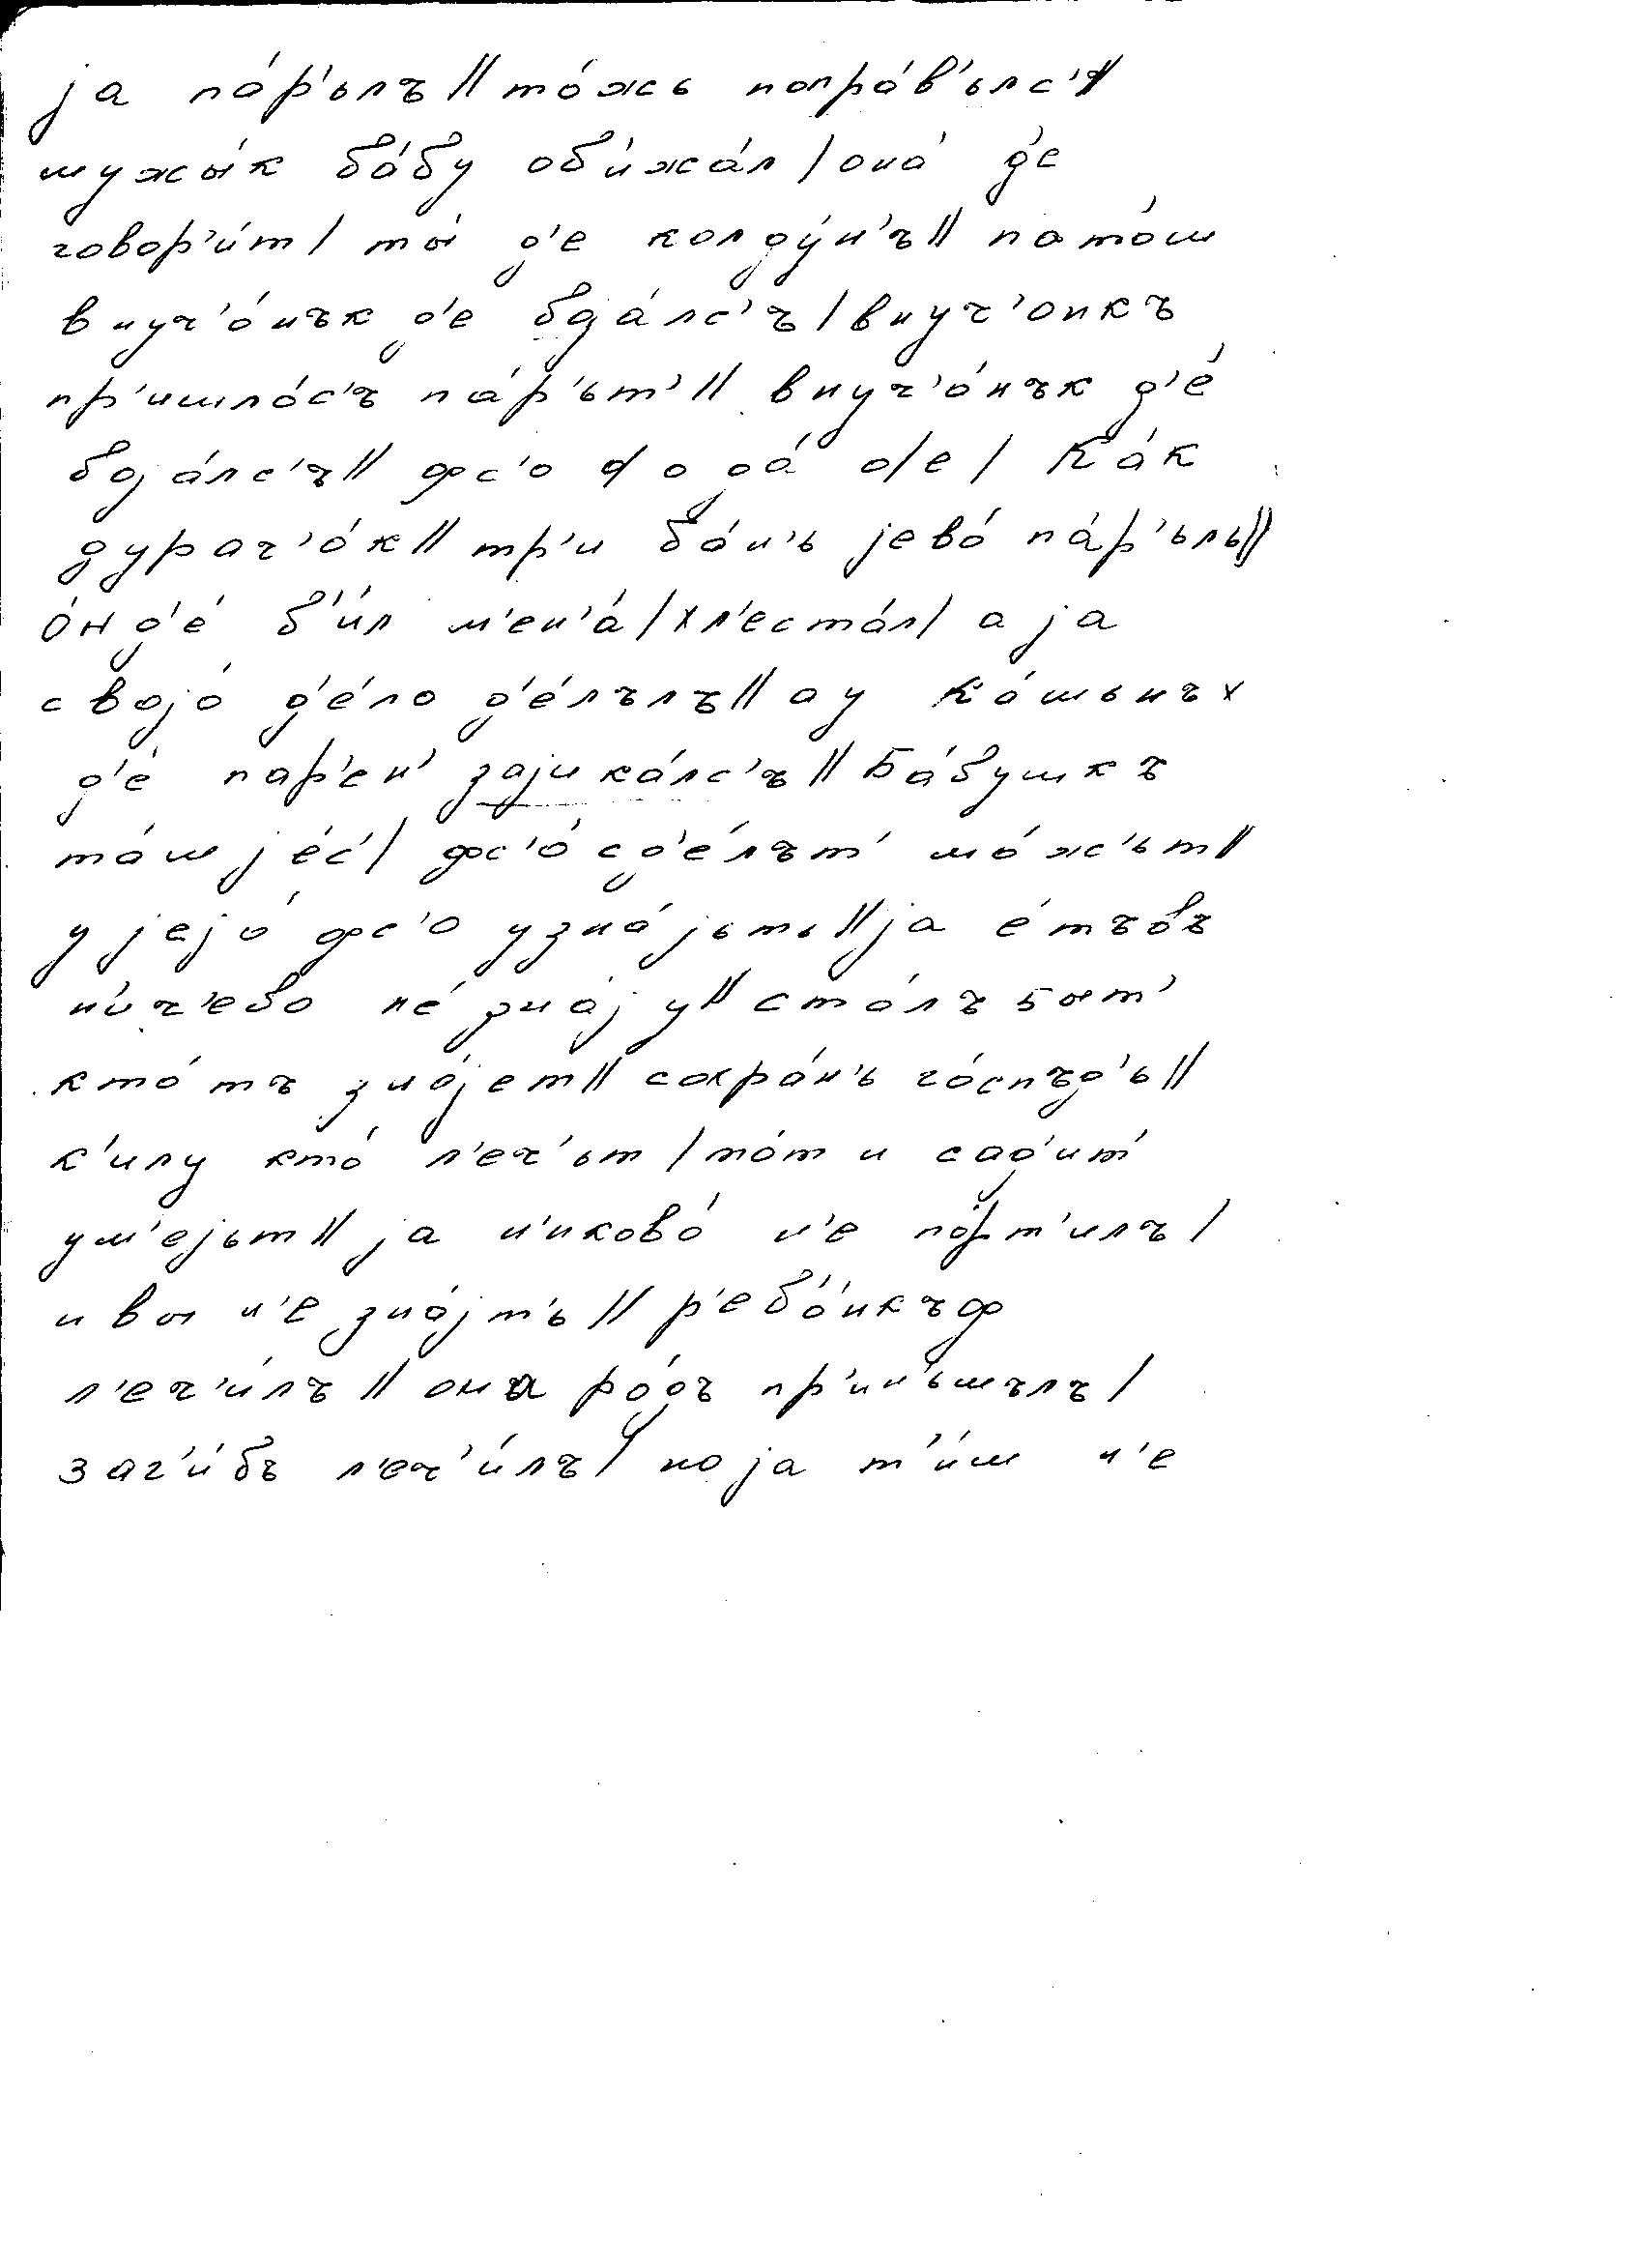 ја па́р'ьлъ || то́жь попра́в'ьлс'ъ ||
мужы́к ба́бу об'ижа́л / она́ д'е
говор'и́т / ты́ д'е колду́н'ъ || пато́м
внуч'о́нък д'е бојáлс'ъ / внуч'онкъ
пр'ишло́с'ъ па́р'ьт' || внуч'о́нък д'е́
бојáлс'ъ || фс'о д'е / Ка́к
дурач'о́к || тр'и ба́н'ь јево́ па́р'ьлъ ||
о́н д'е́ б'и́л м'ен'а́ / хл'еста́л / а ја
својо́ д'е́ло д'е́лълъ || а у ка́мьнъх
д'е́ пар'ен' зајика́лс'ъ || Ба́бушкъ
та́м је́с' / фс'о́ сд'е́лът' мо́жьт ||
у јејо́ фс'о узна́јьть || ја е́тъвъ
н'ич'ево не́ знáју || ста́лъ быт'
кто́ тъ зна́јет || сохра́н'ь го́спъд'ь ||
к'илу кто́ л'еч'ьт / то́т и сад'ит'
ум'ејьт || ја н'иково́ н'е по́рт'илъ /
и вы н'е зна́јт'ь || р'еб'о́нкъф
л'еч'и́лъ || она ро́дъ пр'ин'ьмълъ /
заг'и́бъ л'еч'и́лъ / но ја т'и́м н'е